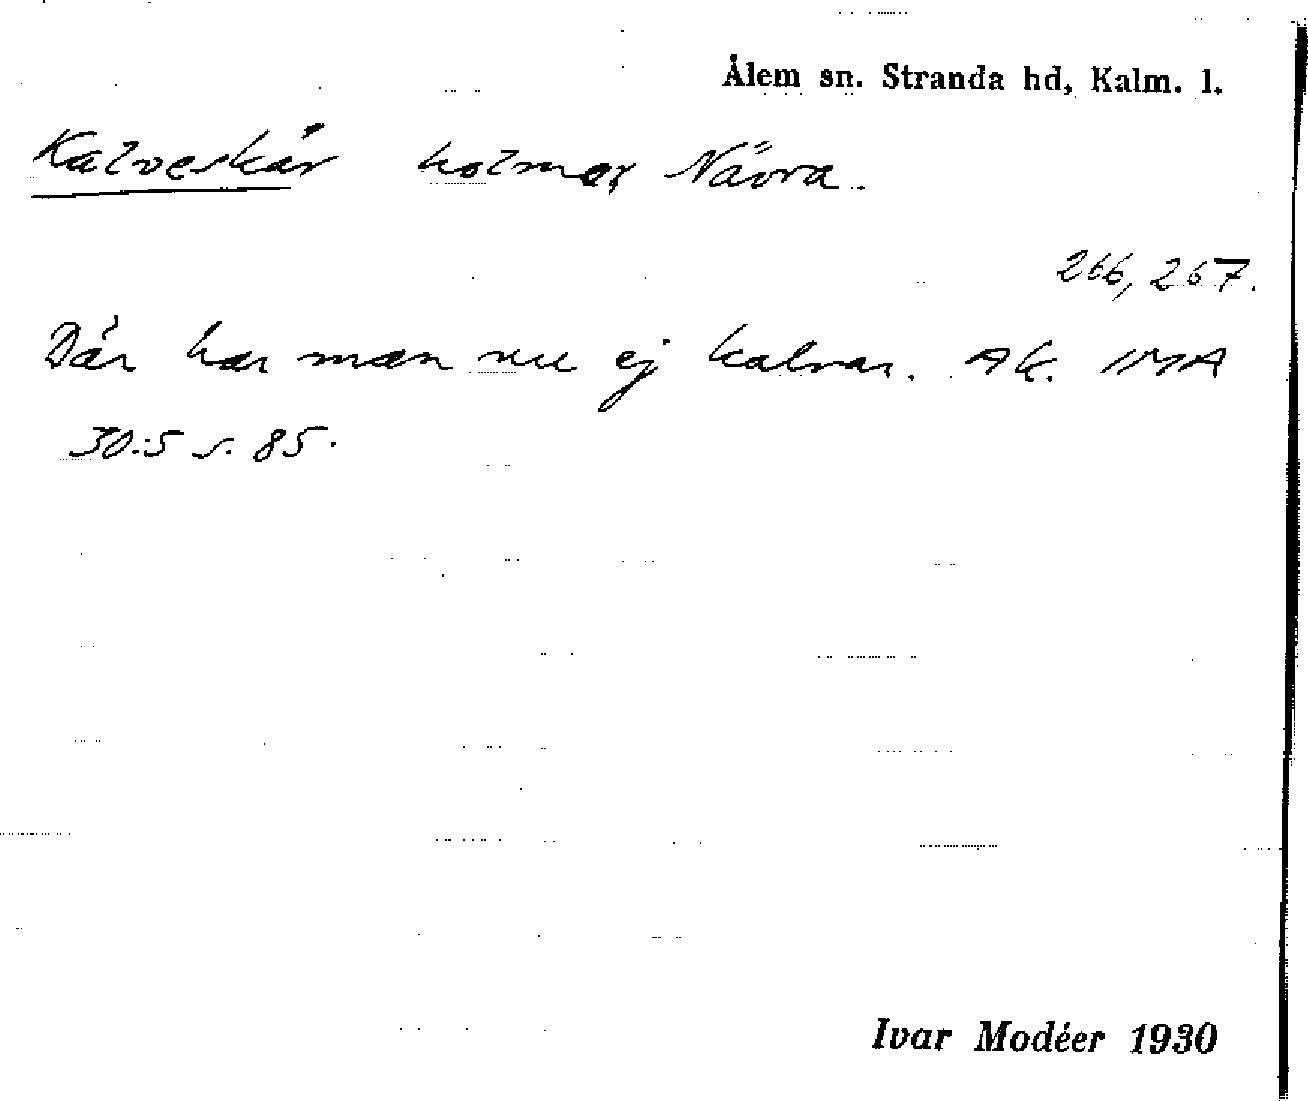 Ålem sn. Stranda hd, Kalm. l.
Kalveskär holmar Nävra.
266, 267.
Där har man nu ej kalvar. AK. IMA
30:5 s. 85.
Ivar Modéer 1930